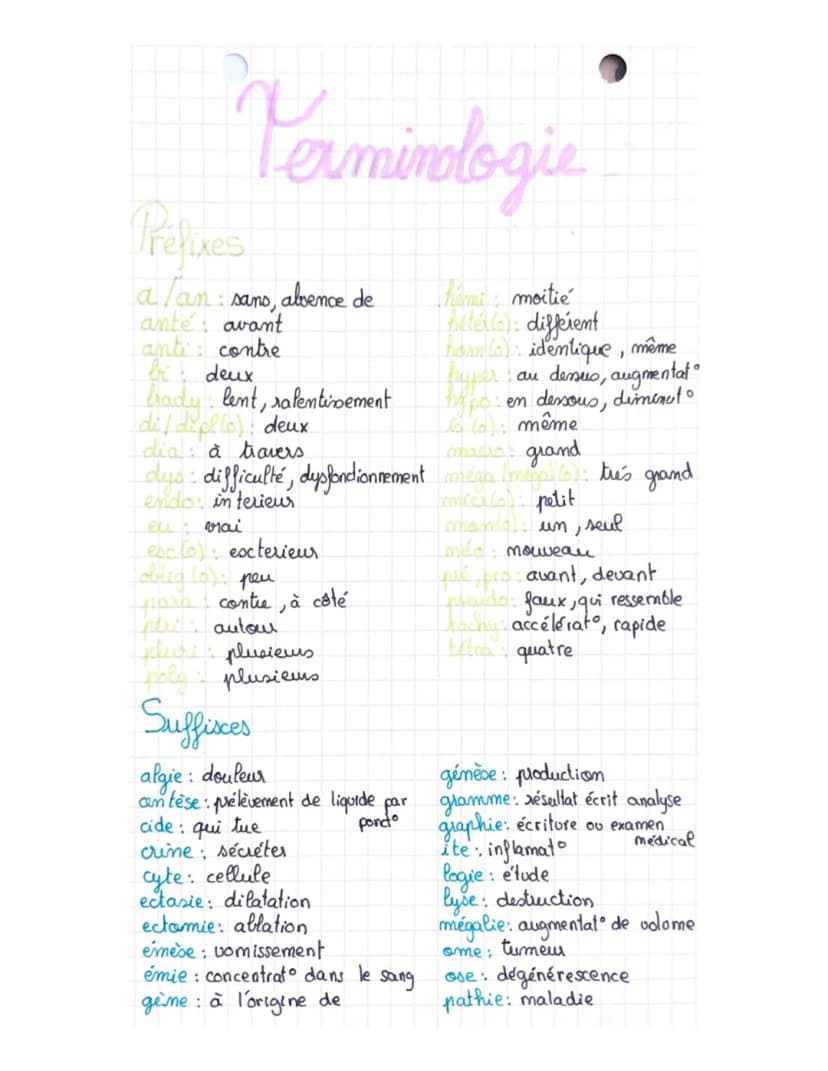 Terminologie
Préfixes
a/an : sans, absence de
anté : avant
anti : contre
bi : deux
brady : lent, ralentissement
di/dipl(o) : deux
dia : à travers
dys : difficulté, dysfonctionnement
endo : interieur
eu : vrai
exc(o) : exterieur
oblig(o) : peu
para : contre, à côté
péri : autour
pluri : plusieurs
poly : plusieurs
hémi : moitié
hétér(o) : différent
hom(o) : identique, même
hyper : au dessus, augmentat°
hypo : en dessous, diminut°
is(o) : même
macro : grand
méga/mégal(o) : très grand
micr(o) : petit
mon(o) : un, seul
néo : nouveau
pré, pro : avant, devant
pseudo : faux, qui ressemble
tachy : accélérat°, rapide
tétra : quatre
Suffixes
algie : douleur
centèse : prélèvement de liquide par
ponct°
cide : qui tue
crine : sécréter
cyte : cellule
ectasie : dilatation
ectomie : ablation
émèse : vomissement
émie : concentrat° dans le sang
gène : à l'origine de
génèse : production
gramme : résultat écrit analyse
graphie : écriture ou examen
médical
ite : inflamat°
logie : étude
lyse : destruction
mégalie : augmentat° de volome
ome : tumeur
ose : dégénérescence
pathie : maladie